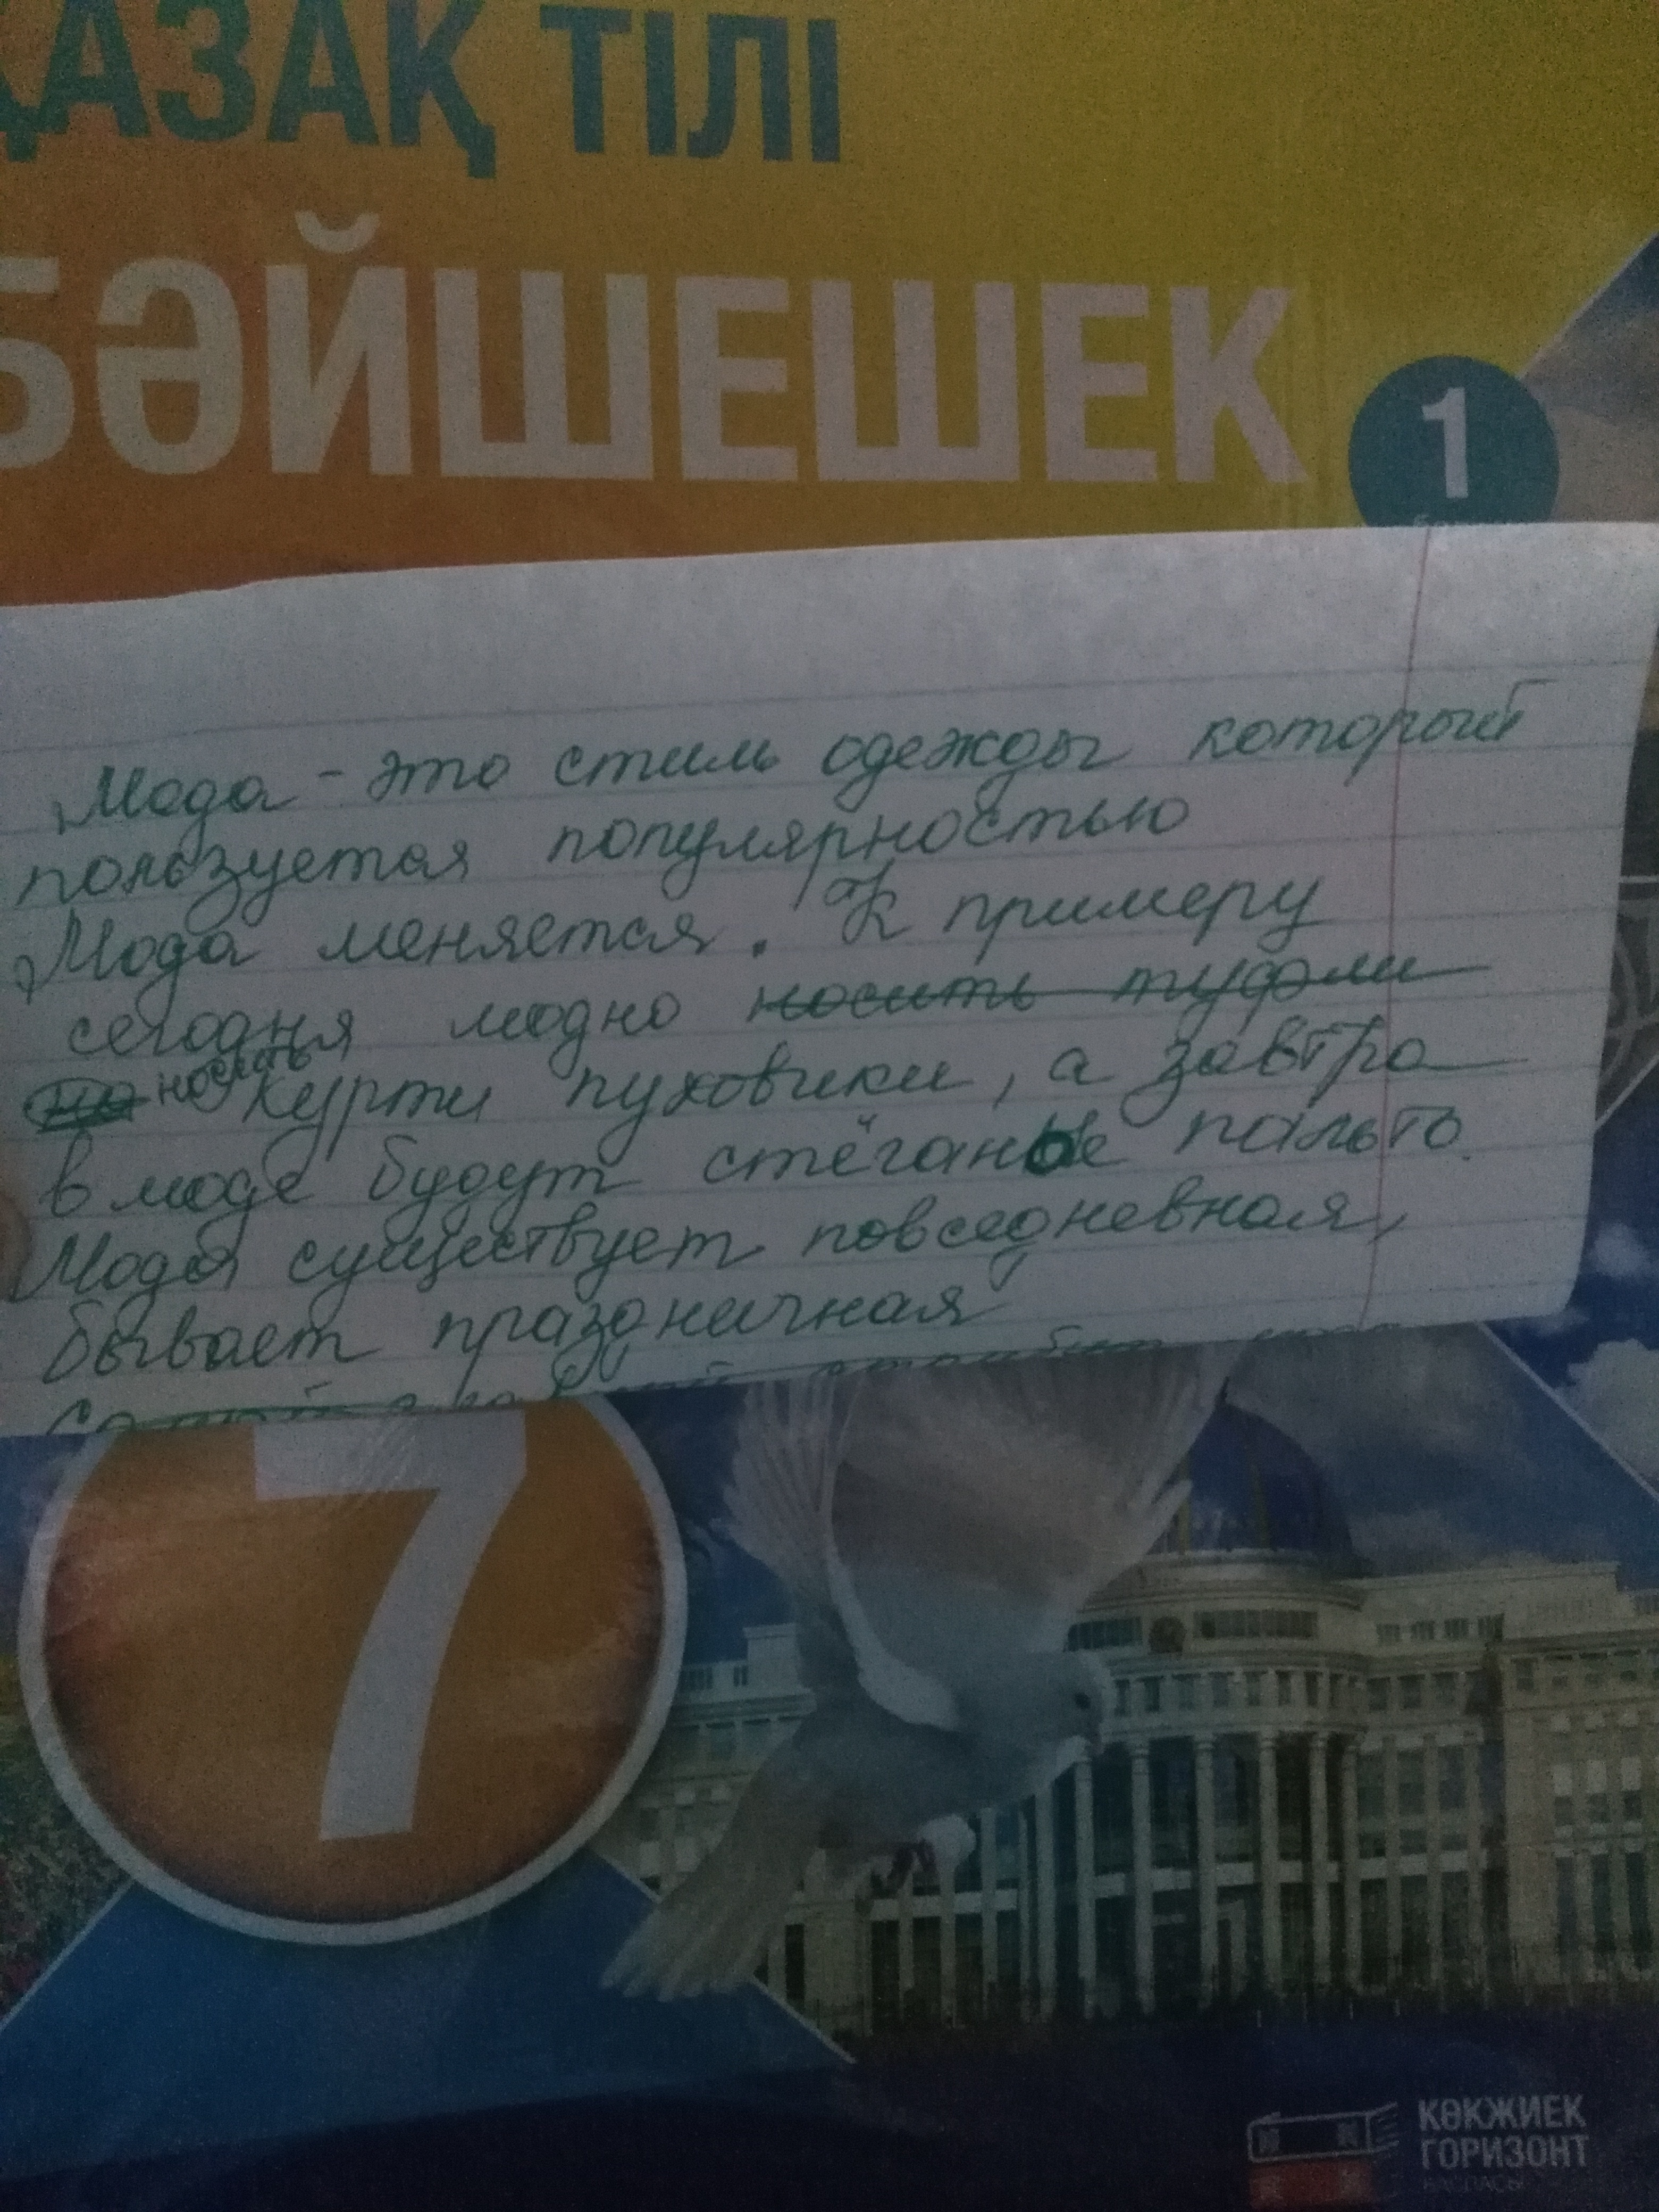 ҚАЗАҚ ТІЛІ
БӘЙШЕШЕК
1
Мода - это стиль одежды который
пользуется популярностью
Мода меняется. К примеру
сегодня модно носить туфли
но носить курти пуховики, а завтра
в моде будут стёганые пальто.
Мода существует повседневная,
бывает праздничная
7
КӨКЖИЕК
ГОРИЗОНТ
БАСПАСЫ